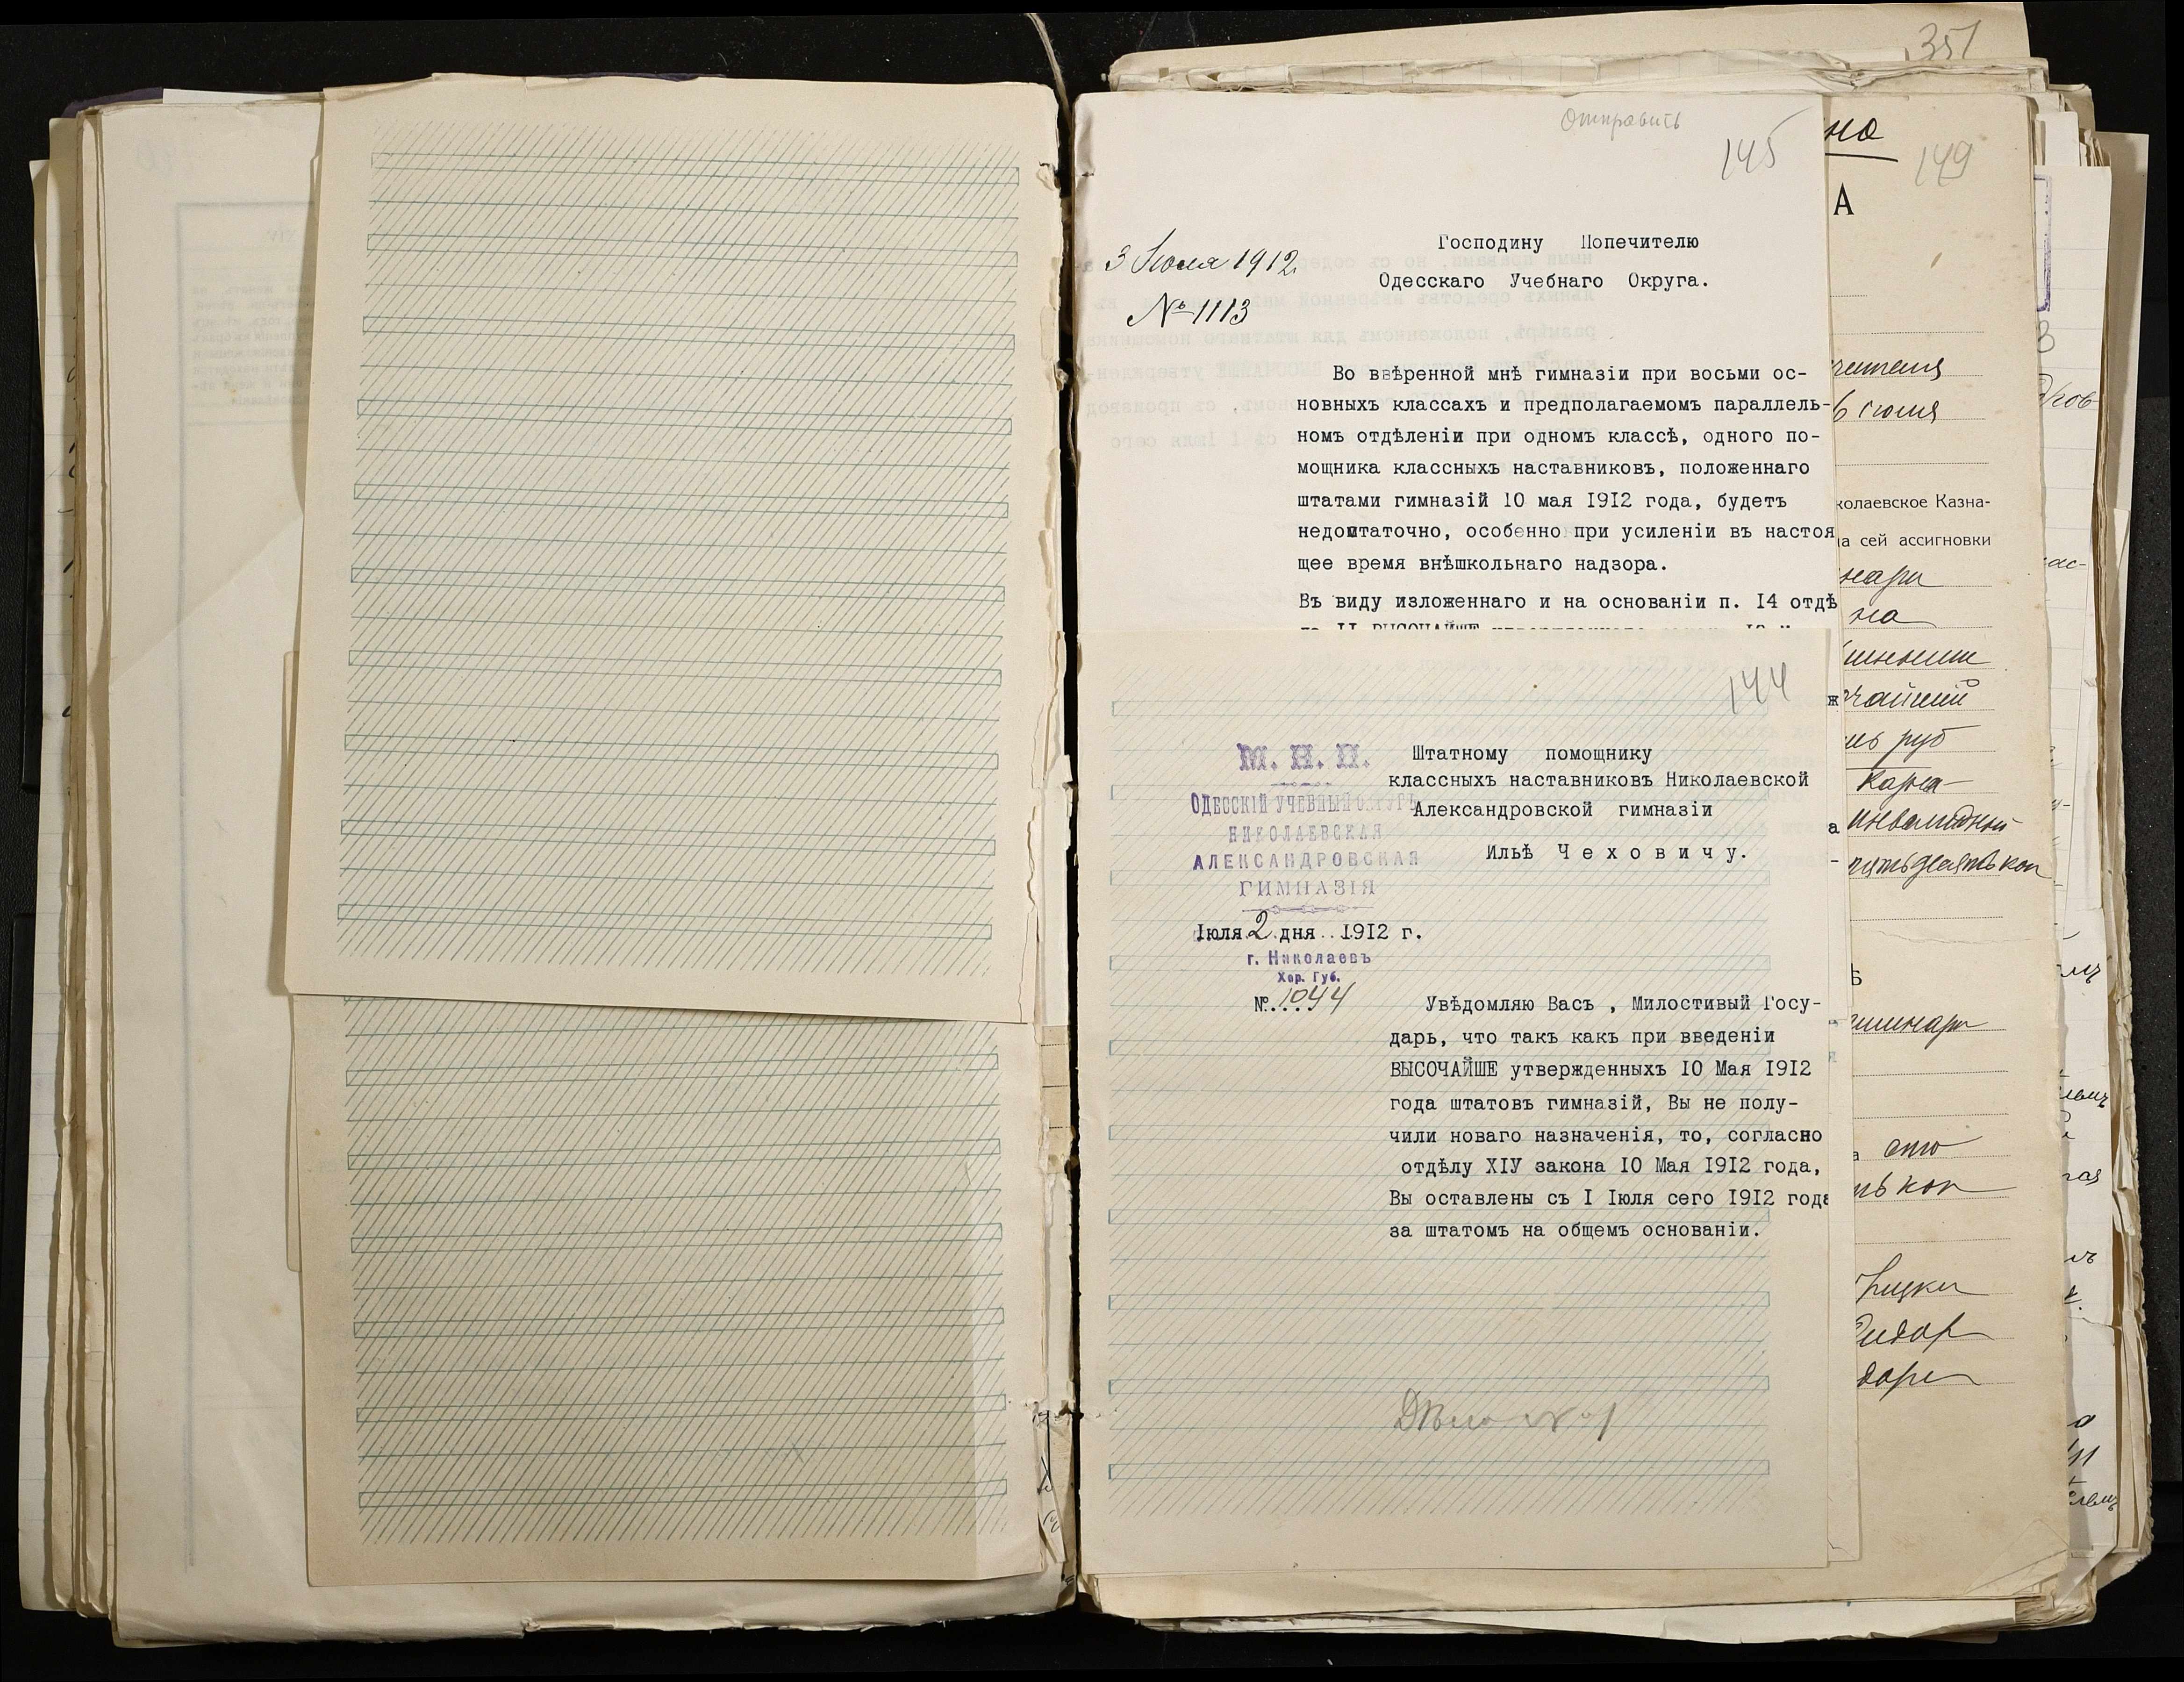 351
Отправить
145
3 Июля 1912
№ 1113
Господину Попечителю
Одесскаго Учебнаго Округа.
Во ввѣренной мнѣ гимназіи при восьми ос-
новныхъ классахъ и предполагаемомъ параллель-
номъ отдѣленіи при одномъ классѣ, одного по-
мощника классныхъ наставниковъ, положеннаго
штатами гимназій 10 мая 1912 года, будетъ
недоштаточно, особенно при усиленіи въ настоя
щее время внѣшкольнаго надзора.
Въ виду изложеннаго и на основаніи п. 14 отдѣ
144
М. Н. П.
ОДЕССКІЙ УЧЕБНЫЙ ОКРУГЪ
НИКОЛАЕВСКАЯ
АЛЕКСАНДРОВСКАЯ
ГИМНАЗІЯ
Іюля 2 дня 1912 г.
г. Николаевъ
Хер. Губ.
№ 1044
Штатному помощнику
классныхъ наставниковъ Николаевской
Александровской гимназіи
Ильѣ Чеховичу.
Увѣдомляю Васъ , Милостивый Госу-
дарь, что такъ какъ при введеніи
ВЫСОЧАЙШЕ утвержденныхъ 10 Мая 1912
года штатовъ гимназій, Вы не полу-
чили новаго назначенія, то, согласно
отдѣлу XIУ закона 10 Мая 1912 года,
Вы оставлены съ I Іюля сего 1912 года
за штатомъ на общемъ основаніи.
Дѣло № 1
но
149
А
6 июля
колаевское Казна-
а сей ассигновки
на
руб
инвалидный
пятьдесятъ коп
сто
коп